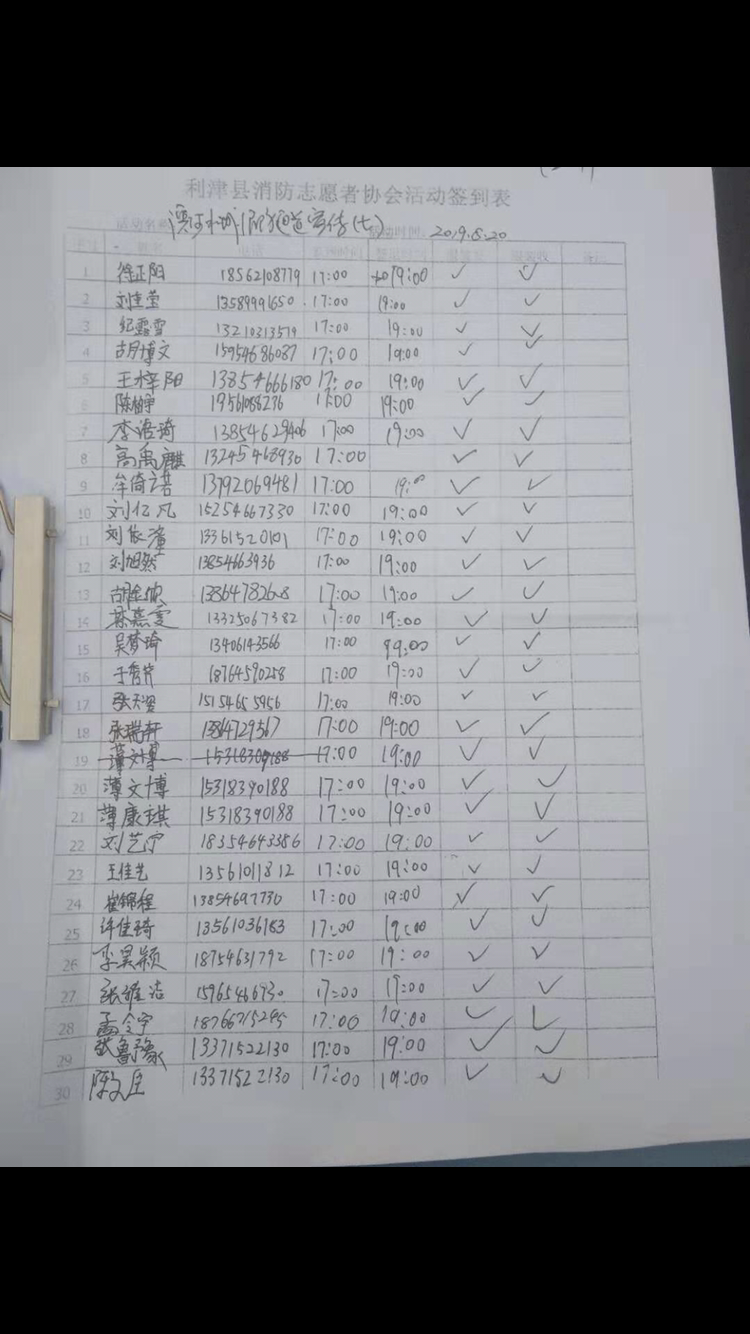 利津县消防志愿者协会活动签到表
活动名称 消防通道宣传(七) 活动时间: 2019.8.20
姓名 电话 签到时间 签退时间 备注
1 徐正阳 18562108779 17:00 19:00 ✓ ✓
2 刘佳莹 13589991650 17:00 19:00 ✓ ✓
3 纪露雪 13210313579 17:00 19:00 ✓ ✓
4 胡博文 15954686087 17:00 19:00 ✓ ✓
5 王梓阳 13854666180 17:00 19:00 ✓ ✓
6 19561088236 17:00 19:00 ✓ ✓
7 李浩琦 13854629406 17:00 19:00 ✓ ✓
8 高禹麒 13245468930 17:00 ✓ ✓
9 牟倚诺 13792069481 17:00 19:00 ✓ ✓
10 刘亿凡 15254667330 17:00 19:00 ✓ ✓
11 刘 13361520101 17:00 19:00 ✓ ✓
12 刘旭然 13854663936 17:00 19:00 ✓ ✓
13 17:00 19:00 ✓ ✓
14 13325067382 17:00 19:00 ✓ ✓
15 吴梦琦 13406143566 17:00 19:00 ✓ ✓
16 18764590258 17:00 19:00 ✓ ✓
17 15154655956 17:00 19:00 ✓ ✓
18 张瑞轩 17:00 19:00 ✓ ✓
19 薄文博 17:00 19:00 ✓ ✓
20 薄文博 15318390188 17:00 19:00 ✓ ✓
21 薄康琪 15318390188 17:00 19:00 ✓ ✓
22 刘艺宁 18354643386 17:00 19:00 ✓ ✓
23 王佳艺 13561011812 17:00 19:00 ✓ ✓
24 崔锦程 13854697730 17:00 19:00 ✓ ✓
25 许佳琦 13561036183 17:00 19:00 ✓ ✓
26 李昊颖 18754631792 17:00 19:00 ✓ ✓
27 张雅洁 15765466730 17:00 19:00 ✓ ✓
28 孟令宇 18766715295 17:00 19:00 ✓ ✓
29 张鲁豫 13371522130 17:00 19:00 ✓ ✓
30 13371522130 17:00 19:00 ✓ ✓